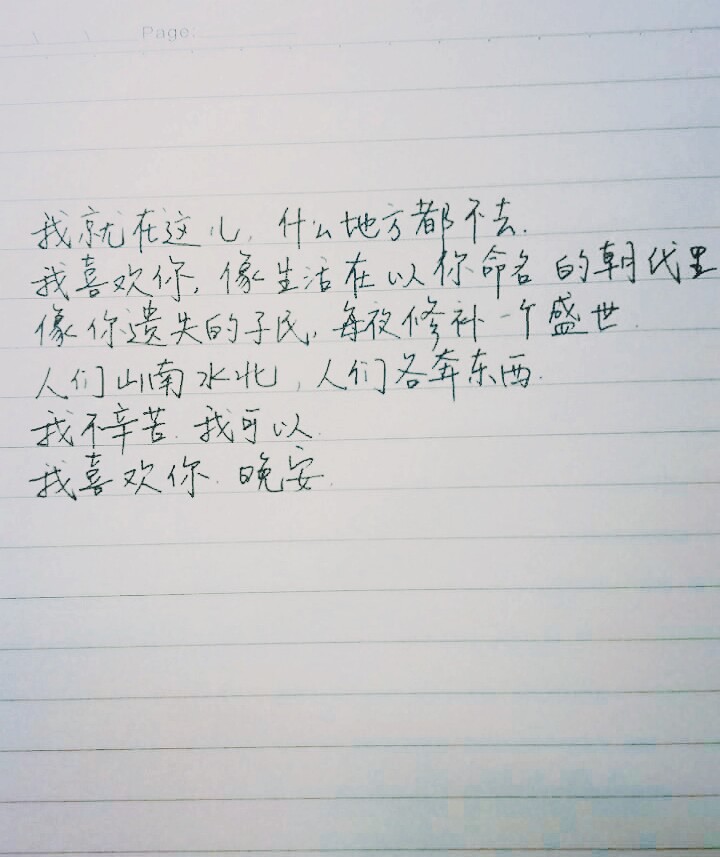 Page:
我就在这儿,什么地方都不去.
我喜欢你,像生活在以你命名的朝代里
像你遗失的子民,每夜修补一个盛世.
人们山南水北,人们各奔东西.
我不辛苦.我可以.
我喜欢你.晚安.